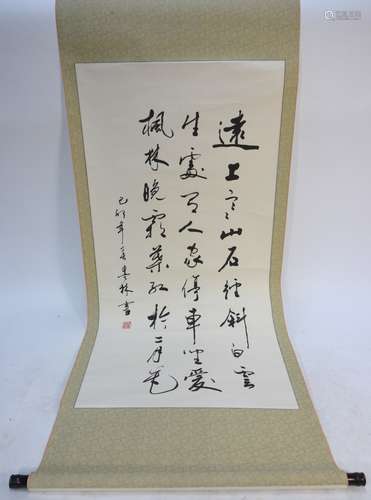 遠上寒山石徑斜白雲
生處有人家停車坐愛
楓林晚霜葉紅於二月花
己卯年林書